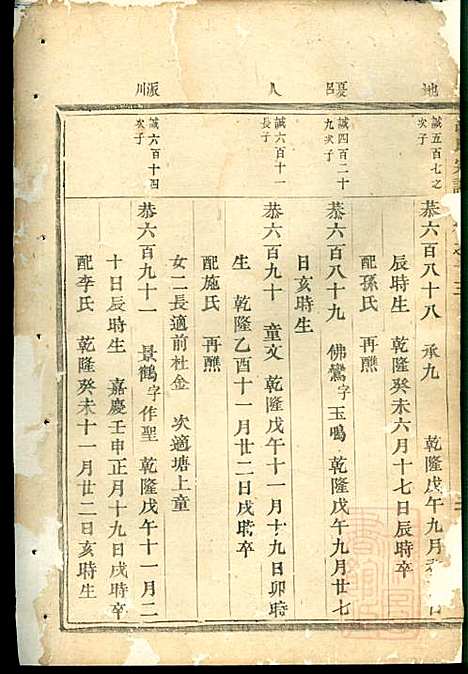 地
誠五百七之
次子
恭六百八十八 承九 乾隆戊午九月
辰時生 乾隆癸未六月十七日辰時卒
配孫氏 再醮
夏呂
誠四百二十
九次子
恭六百八十九 佛鸞字玉鳴 乾隆戊午九月廿七
日亥時生
人
誠六百十一
長子
恭六百九十 童文 乾隆戊午十一月十九日卯時
生 乾隆乙酉十一月廿二日戌時卒
配施氏 再醮
女二長適前杜金 次適塘上童
派川
誠六百十四
次子
恭六百九十一 景鶴字作聖 乾隆戊午十一月二
十日辰時生 嘉慶壬申正月十九日戌時卒
配李氏 乾隆癸未十一月廿二日亥時生